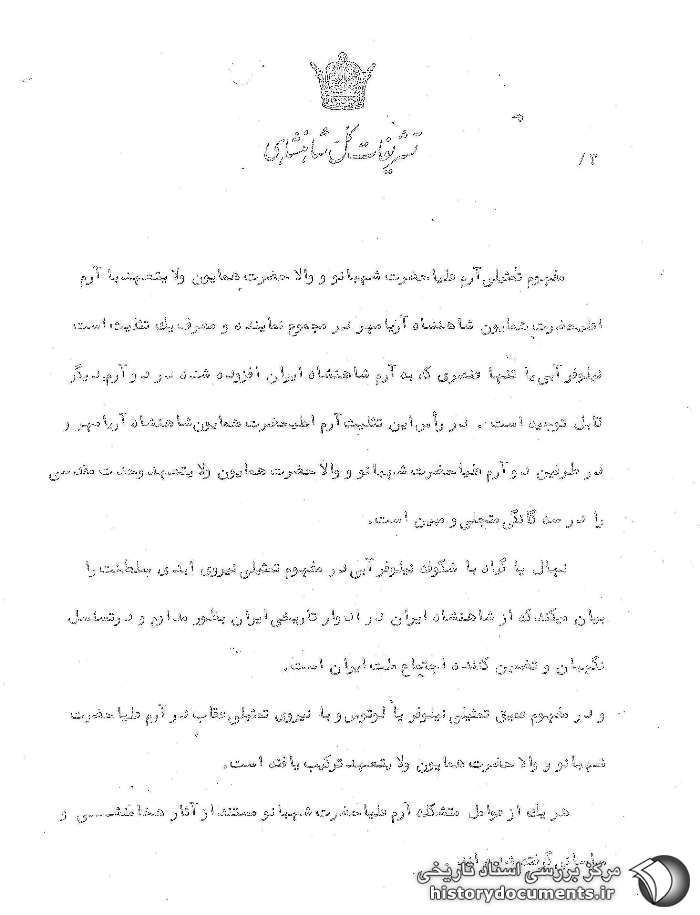 تشریفات کل شاهنشاهی
۲/
مفهوم تمثیلی آرم علیاحضرت شهبانو و والا حضرت همایون ولایتعهد با آرم
اعلیحضرت همایون شاهنشاه آریامهر در مجموع نماینده و معرف یک تثلیث است
نیلوفر آبی یا تنها عنصری که به آرم شاهنشاه ایران افزوده شده در دو آرم دیگر
قابل توجیه است . در رأس این تثلیث آرم اعلیحضرت همایون شاهنشاه آریامهر و
در طرفین دو آرم علیاحضرت شهبانو و والا حضرت همایون ولایتعهد وحدت مقدسی
را در سه گانگی متجلی و مبین است.
نهال یا گیاه با شکوفه نیلوفر آبی در مفهوم تمثیلی نیروی ابدی سلطنت را
بیان میکند که از شاهنشاه ایران در ادوار تاریخی ایران بطور مداوم و در تسلسل
نگهبان و تضمین کننده اجتماع ملت ایران است.
و در مفهوم عمیق تمثیلی نیلوفر یا لوتوس و با نیروی تمثیلی عقاب در آرم علیا حضرت
شهبانو و والا حضرت همایون ولایتعهد ترکیب یافته است.
هر یک از عوامل متشکله آرم علیا حضرت شهبانو مستند از آثار هخامنشی و
ساسانی گرفته شده است
مرکز بررسی اسناد تاریخی
historydocuments.ir